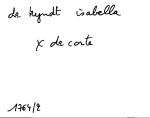 de keyndt isabella
x de corte
1764/2